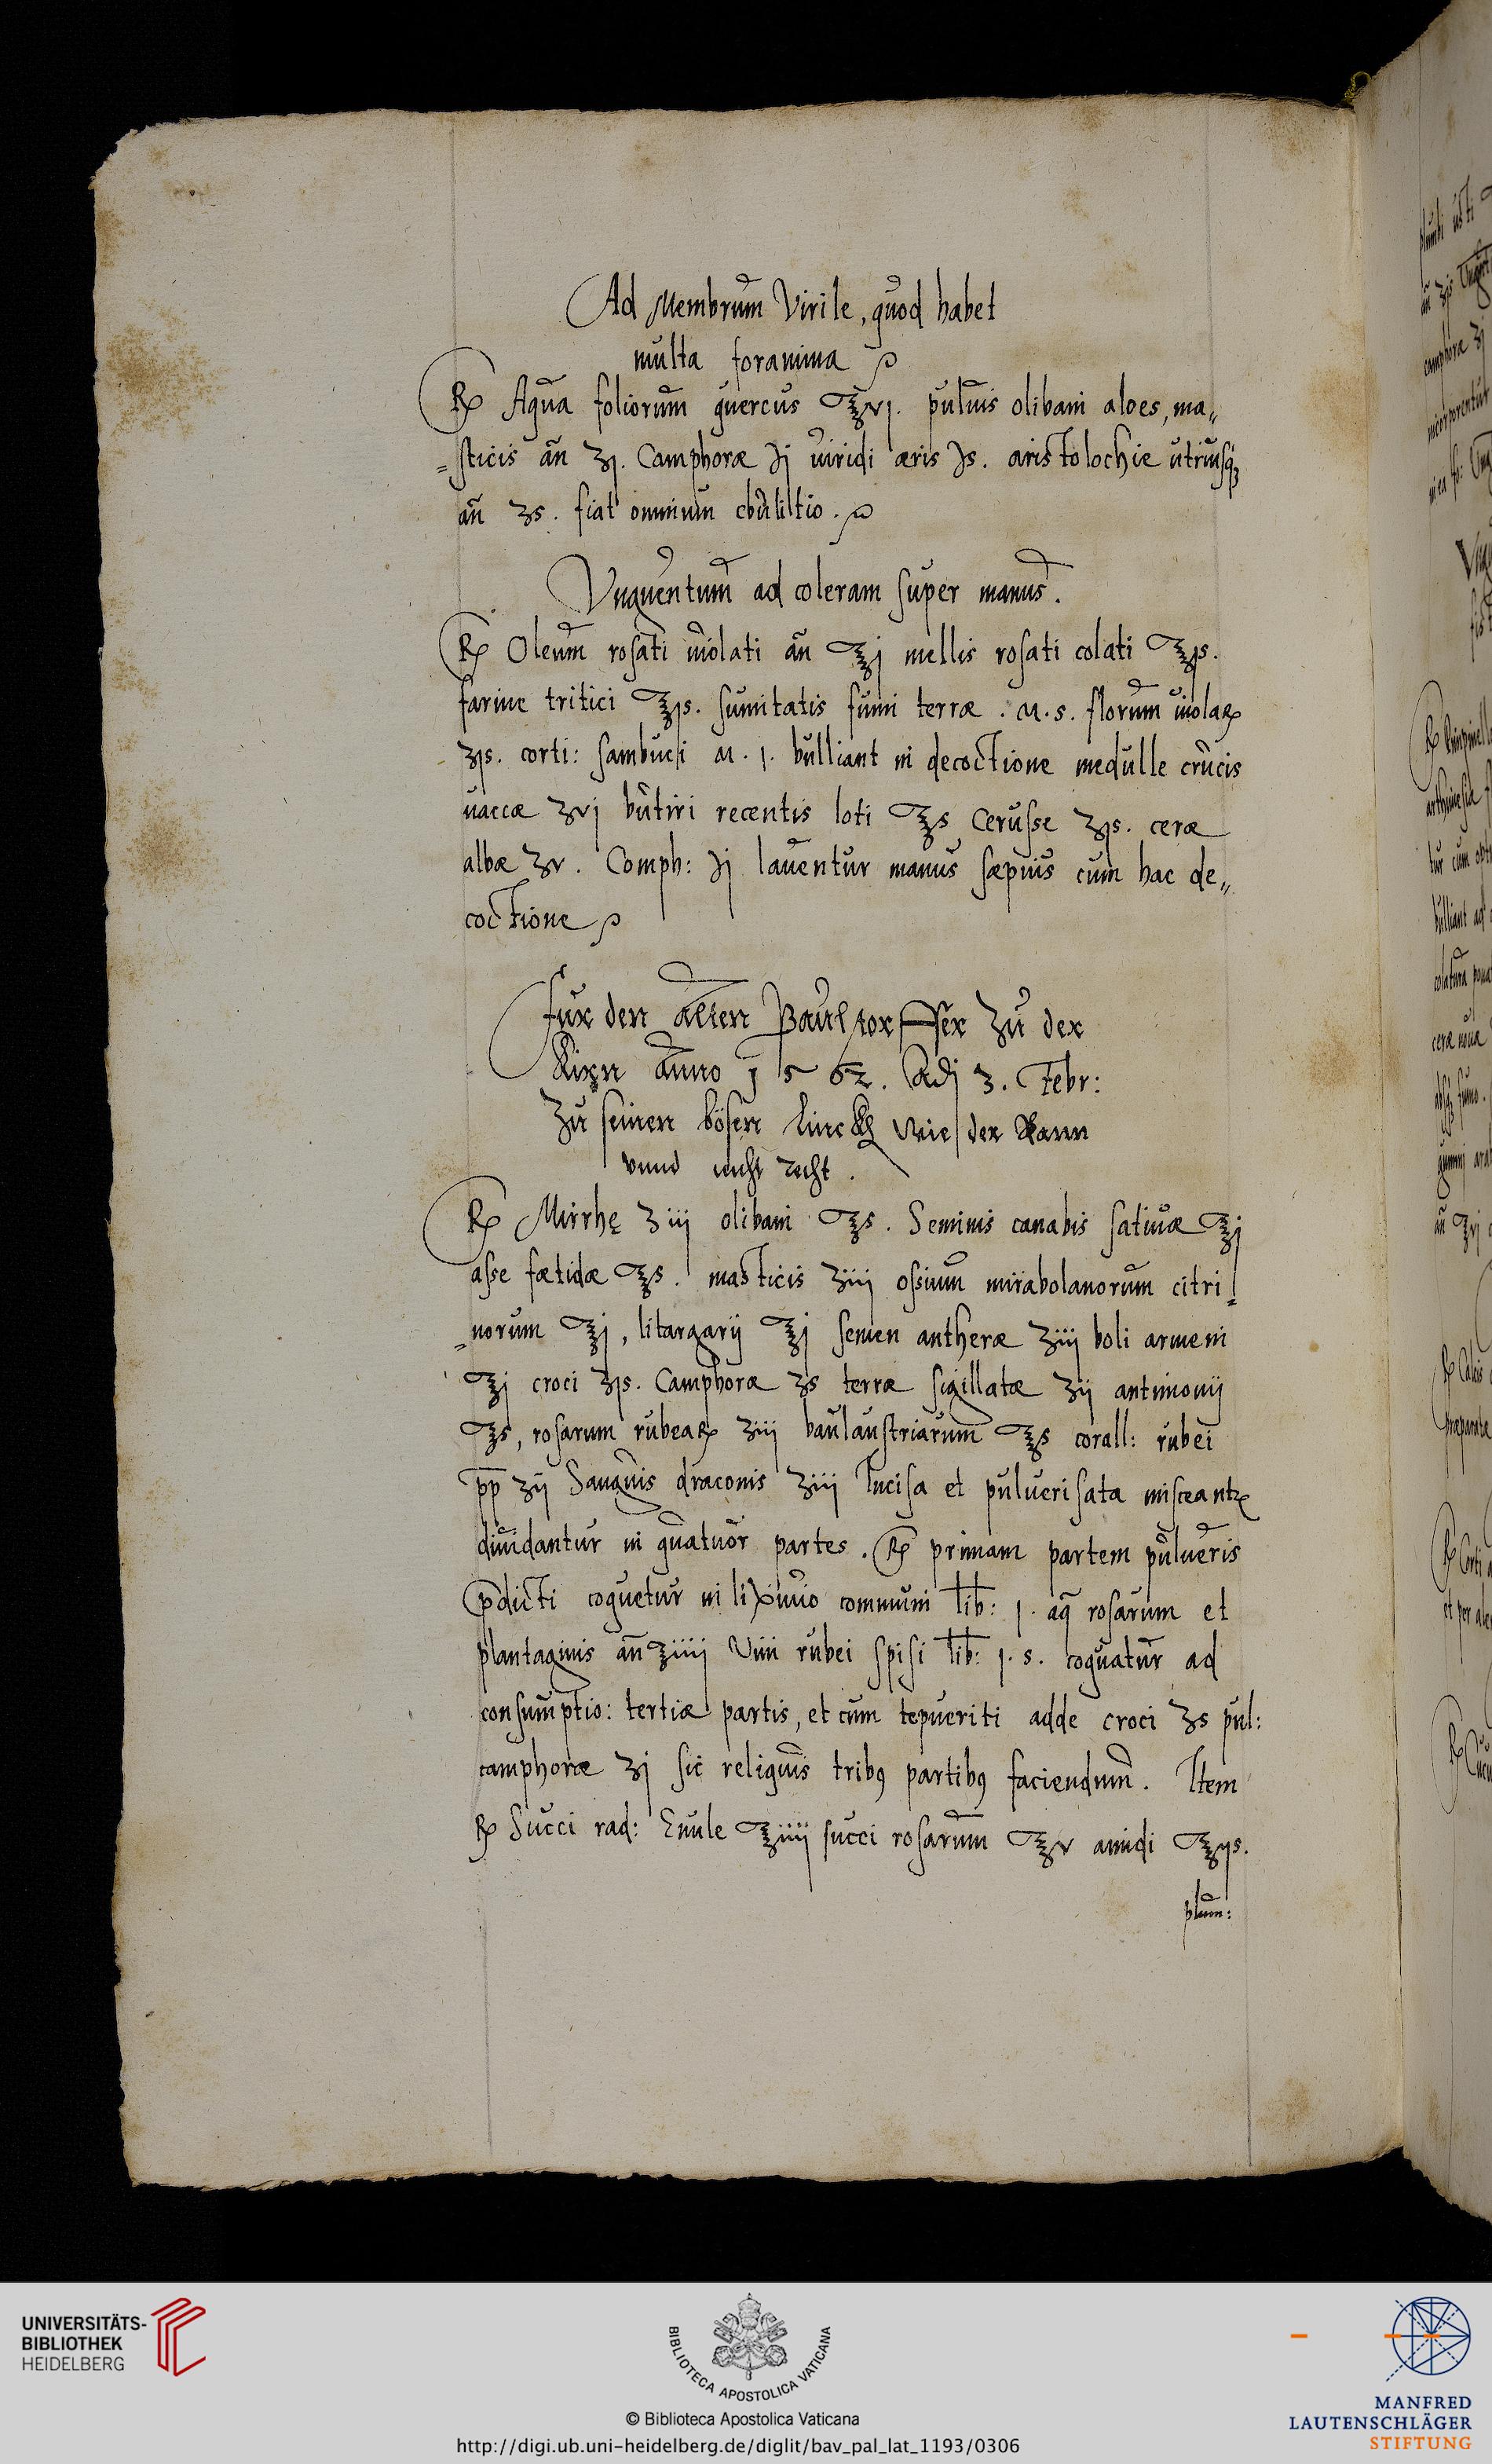 Ad Membrum Virile, quod habet
multa foramina
℞ Aqua foliorum quercus ℥vj. puluis olibani aloes, ma„
„sticis añ ʒj. Camphoræ ℈j uiridi æris ℈s. aristolochie utriusq3
añ ʒs. fiat omnium ebulitio.
Vnguentum ad coleram super manus.
℞ Oleum rosati uiolati añ ℥j mellis rosati colati ℥js.
farine tritici ℥js. sumitatis fumi terræ . M. s. florum uiolaꝝ
ʒjs. corti: sambuci M. j. bulliant in decoctione medulle crucis
uaccæ ʒvj butiri recentis loti ℥s Cerusse ʒjs. ceræ
albæ ʒv. Comph: ℈j lauentur manus sæpius cum hac de„
coctione
für den alten Paulstorffer Zu der
Kirn Anno 1562. Adj 3. Febr:
Zu seinen bösen linckh
vnnd nicht recht.
℞ Mirrhę ʒiij olibani ℥s. Seminis canabis satiuæ ℥j
asse fætidæ ℥s. masticis ʒiij ossium mirabolanorum citri„
„norum ℥j, litargarij ℥j semen antheræ ʒiij boli armeni
℥j croci ʒjs. Camphoræ ʒs terræ sigillatæ ʒij antimonij
℥s, rosarum rubeaꝝ ʒiij baulaustriarum ℥s corall: rubei
pp ʒij Sanguis draconis ʒiij Incisa et puluerisata misceantꝝ
diuidantur in quatuor partes. ℞ primam partem pulueris
p̄dicti coquetur in lixiuio communi lib: j. aq̃ rosarum et
plantaginis añ ʒiiij Vini rubei spisi lib: j. s. coquatur ad
consumptio: tertiæ partis, et cum tepueriti adde croci ʒs pul:
camphoræ ʒj sic reliquis tribꝫ partibꝫ faciendum. Item
℞ Succi rad: Enule ℥iiij succi rosarum ℥v amidi ℥ijs.
plum:
plumbi usti
camphoræ ʒj
incorporentur
UNIVERSITÄTS-
BIBLIOTHEK
HEIDELBERG
BIBLIOTECA APOSTOLICA VATICANA
© Biblioteca Apostolica Vaticana
http://digi.ub.uni-heidelberg.de/diglit/bav_pal_lat_1193/0306
MANFRED
LAUTENSCHLÄGER
STIFTUNG